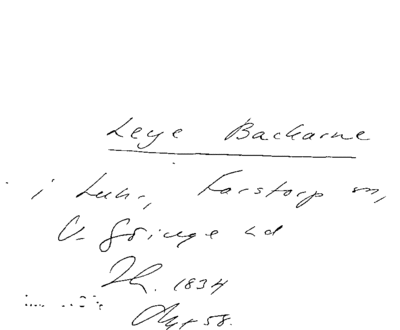 Leye Backarne
i Luhr, Farstorp sn,
V. Göinge hd
Th. 1834
Akt 58.